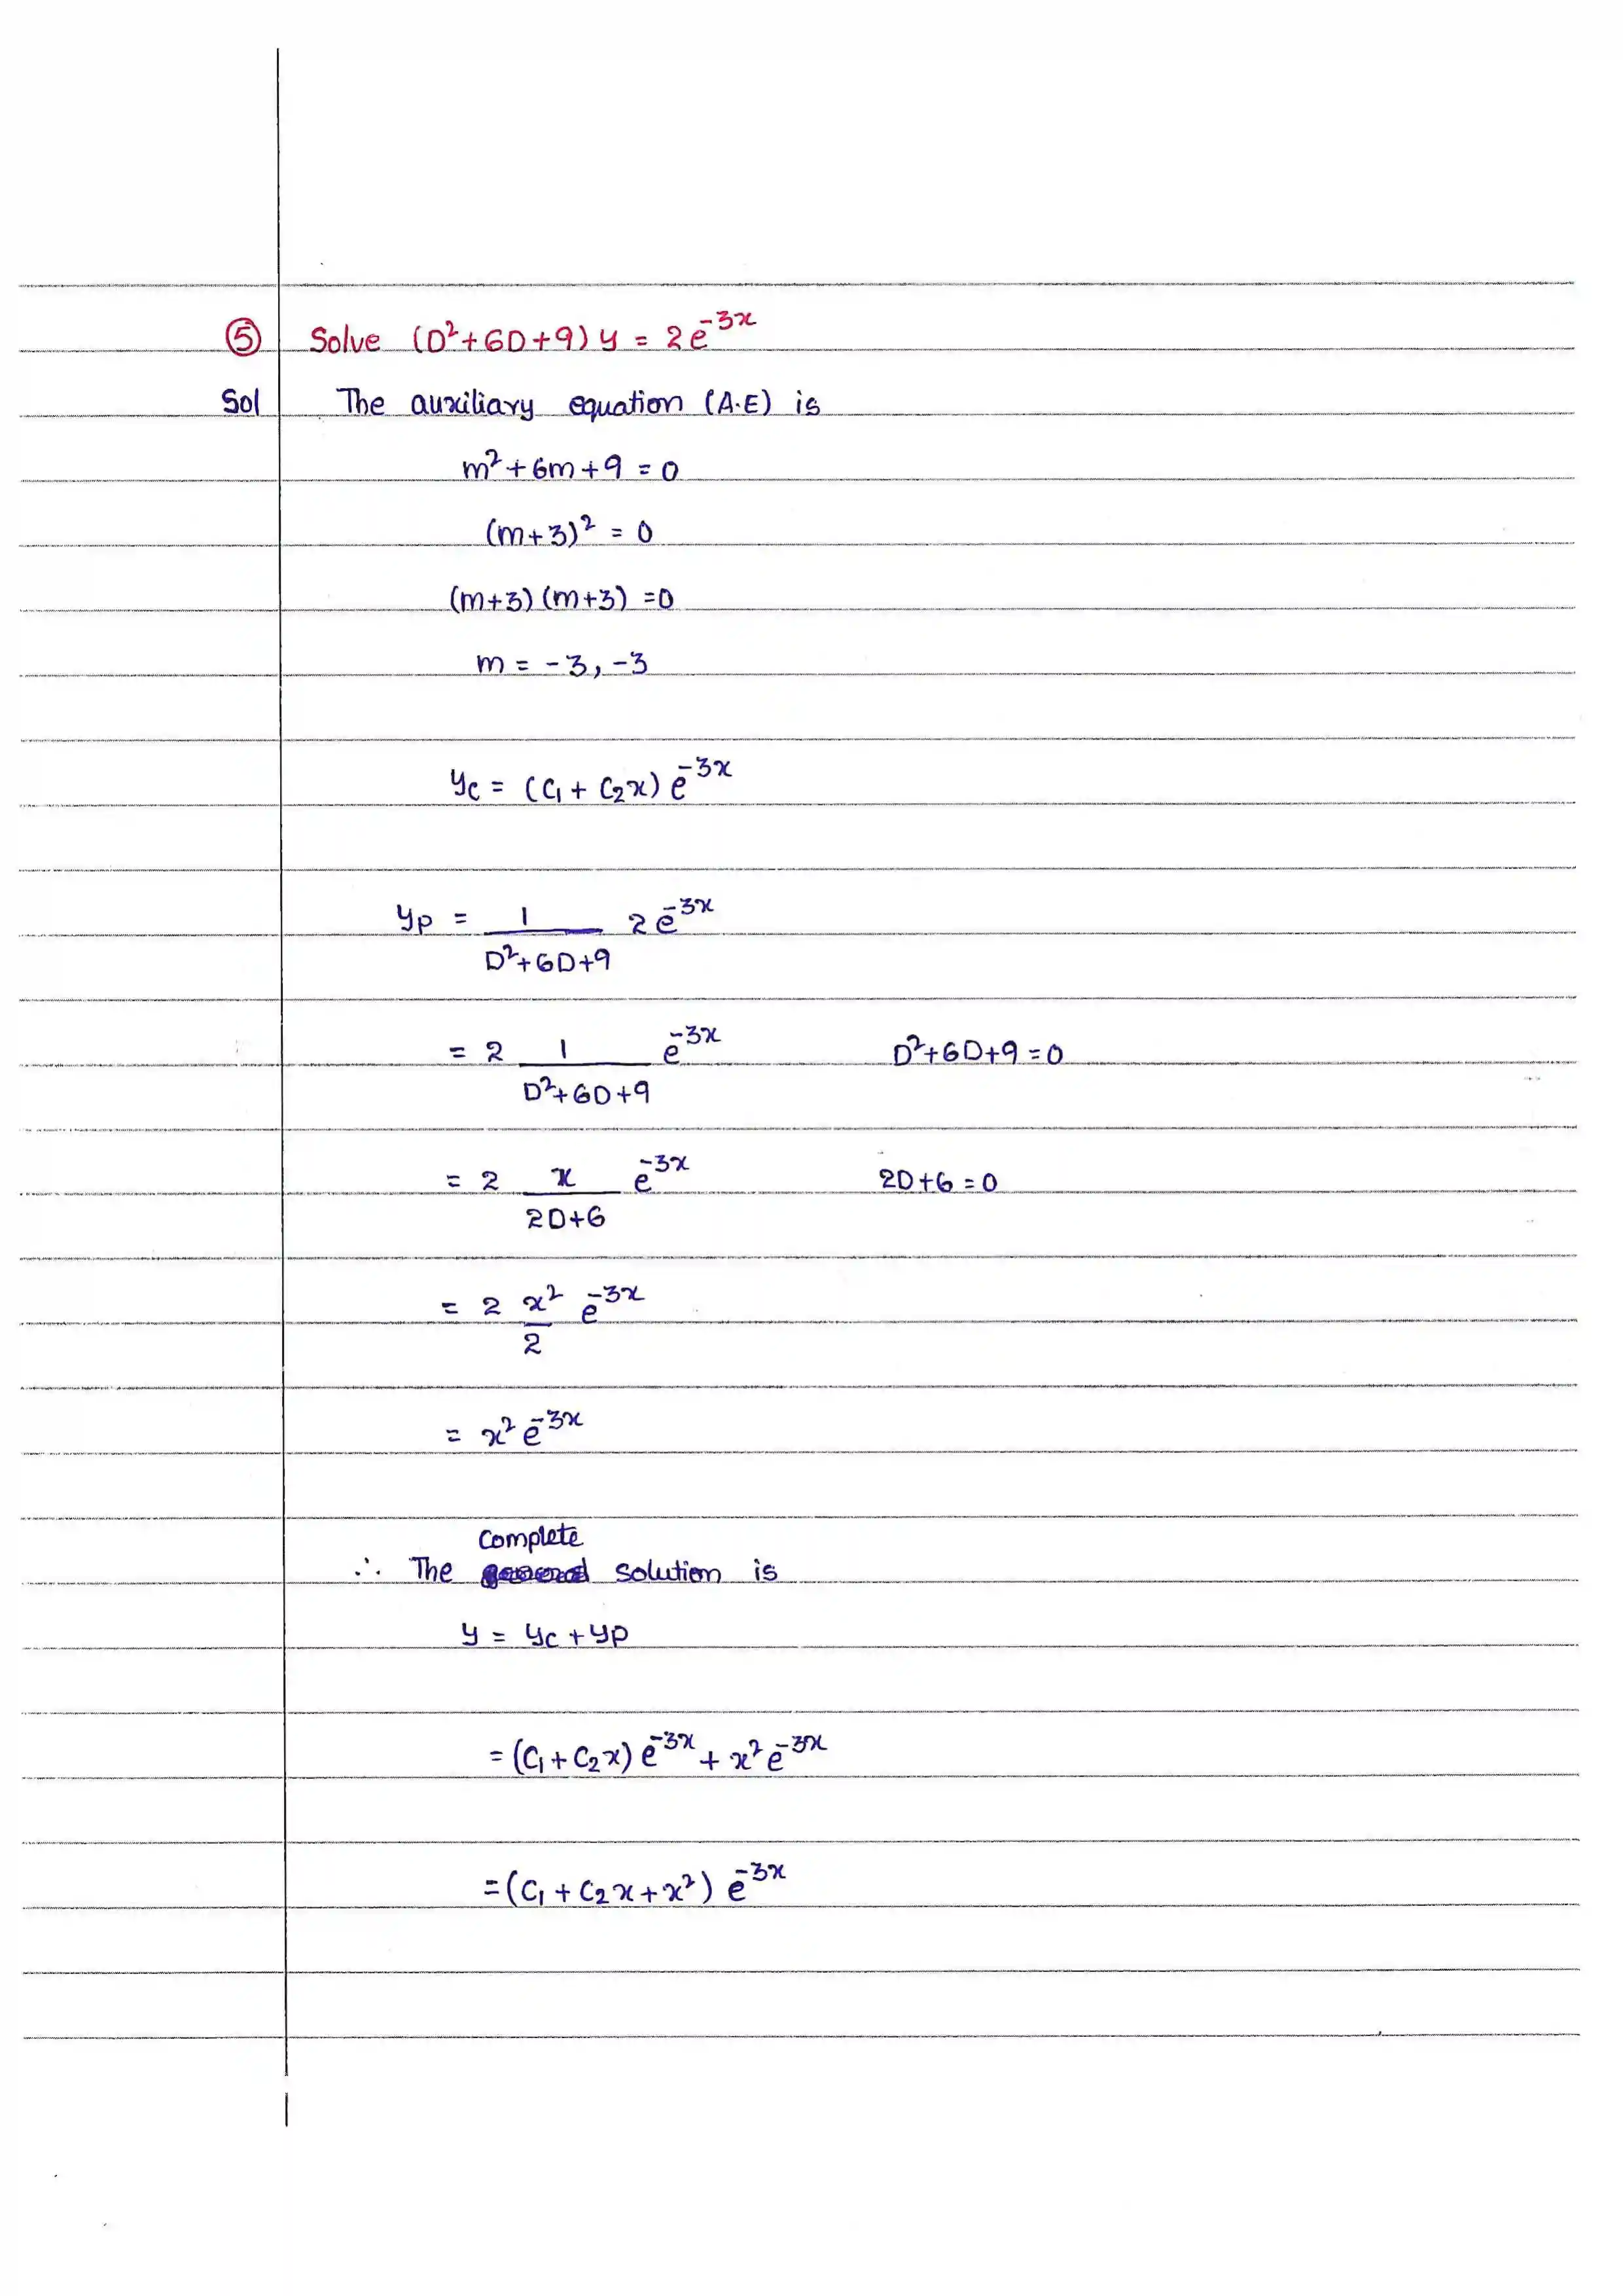 ⑤ Solve (D²+6D+9) y = 2e⁻³ˣ
Sol The auxiliary equation (A.E) is
m²+6m+9 = 0
(m+3)² = 0
(m+3) (m+3) =0
m = -3, -3
yc = (C₁ + C₂x) e⁻³ˣ
yp = 1/(D²+6D+9) 2e⁻³ˣ
= 2 1/(D²+6D+9) e⁻³ˣ D²+6D+9=0
= 2 x/(2D+6) e⁻³ˣ 2D+6=0
= 2 x²/2 e⁻³ˣ
= x² e⁻³ˣ
Complete
∴ The solution is
y = yc + yp
= (C₁ + C₂x) e⁻³ˣ + x² e⁻³ˣ
= (C₁ + C₂x + x²) e⁻³ˣ